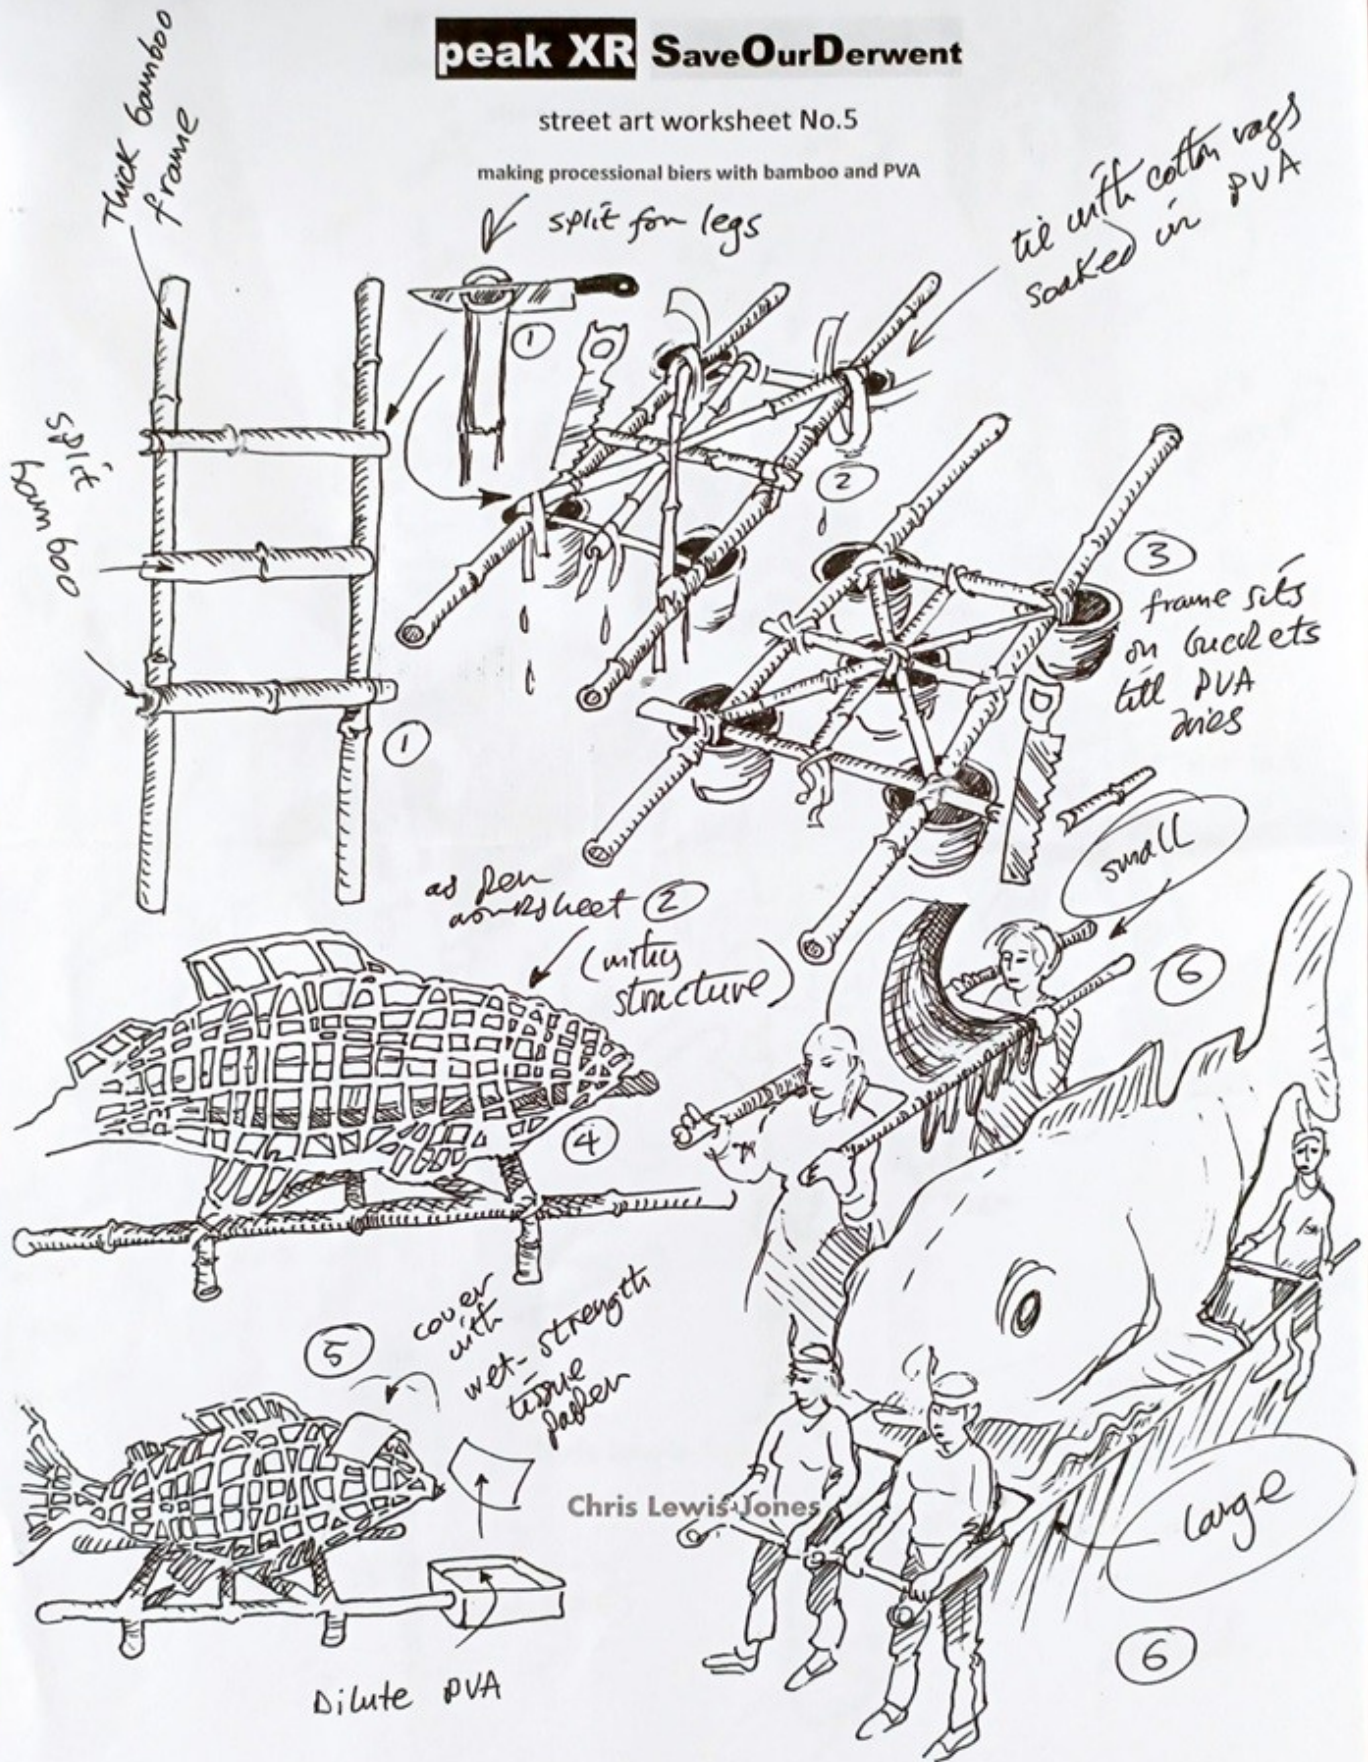 peak XR SaveOurDerwent
street art worksheet No.5
making processional biers with bamboo and PVA
Thick bamboo
frame
split for legs
tie with cotton rags
soaked in PVA
1
split
bamboo
2
3
frame sits
on buckets
till PVA
dries
1
small
as per
worksheet 2
(withy
structure)
6
4
5
cover
with
wet-strength
tissue
paper
Chris Lewis-Jones
large
Dilute PVA
6